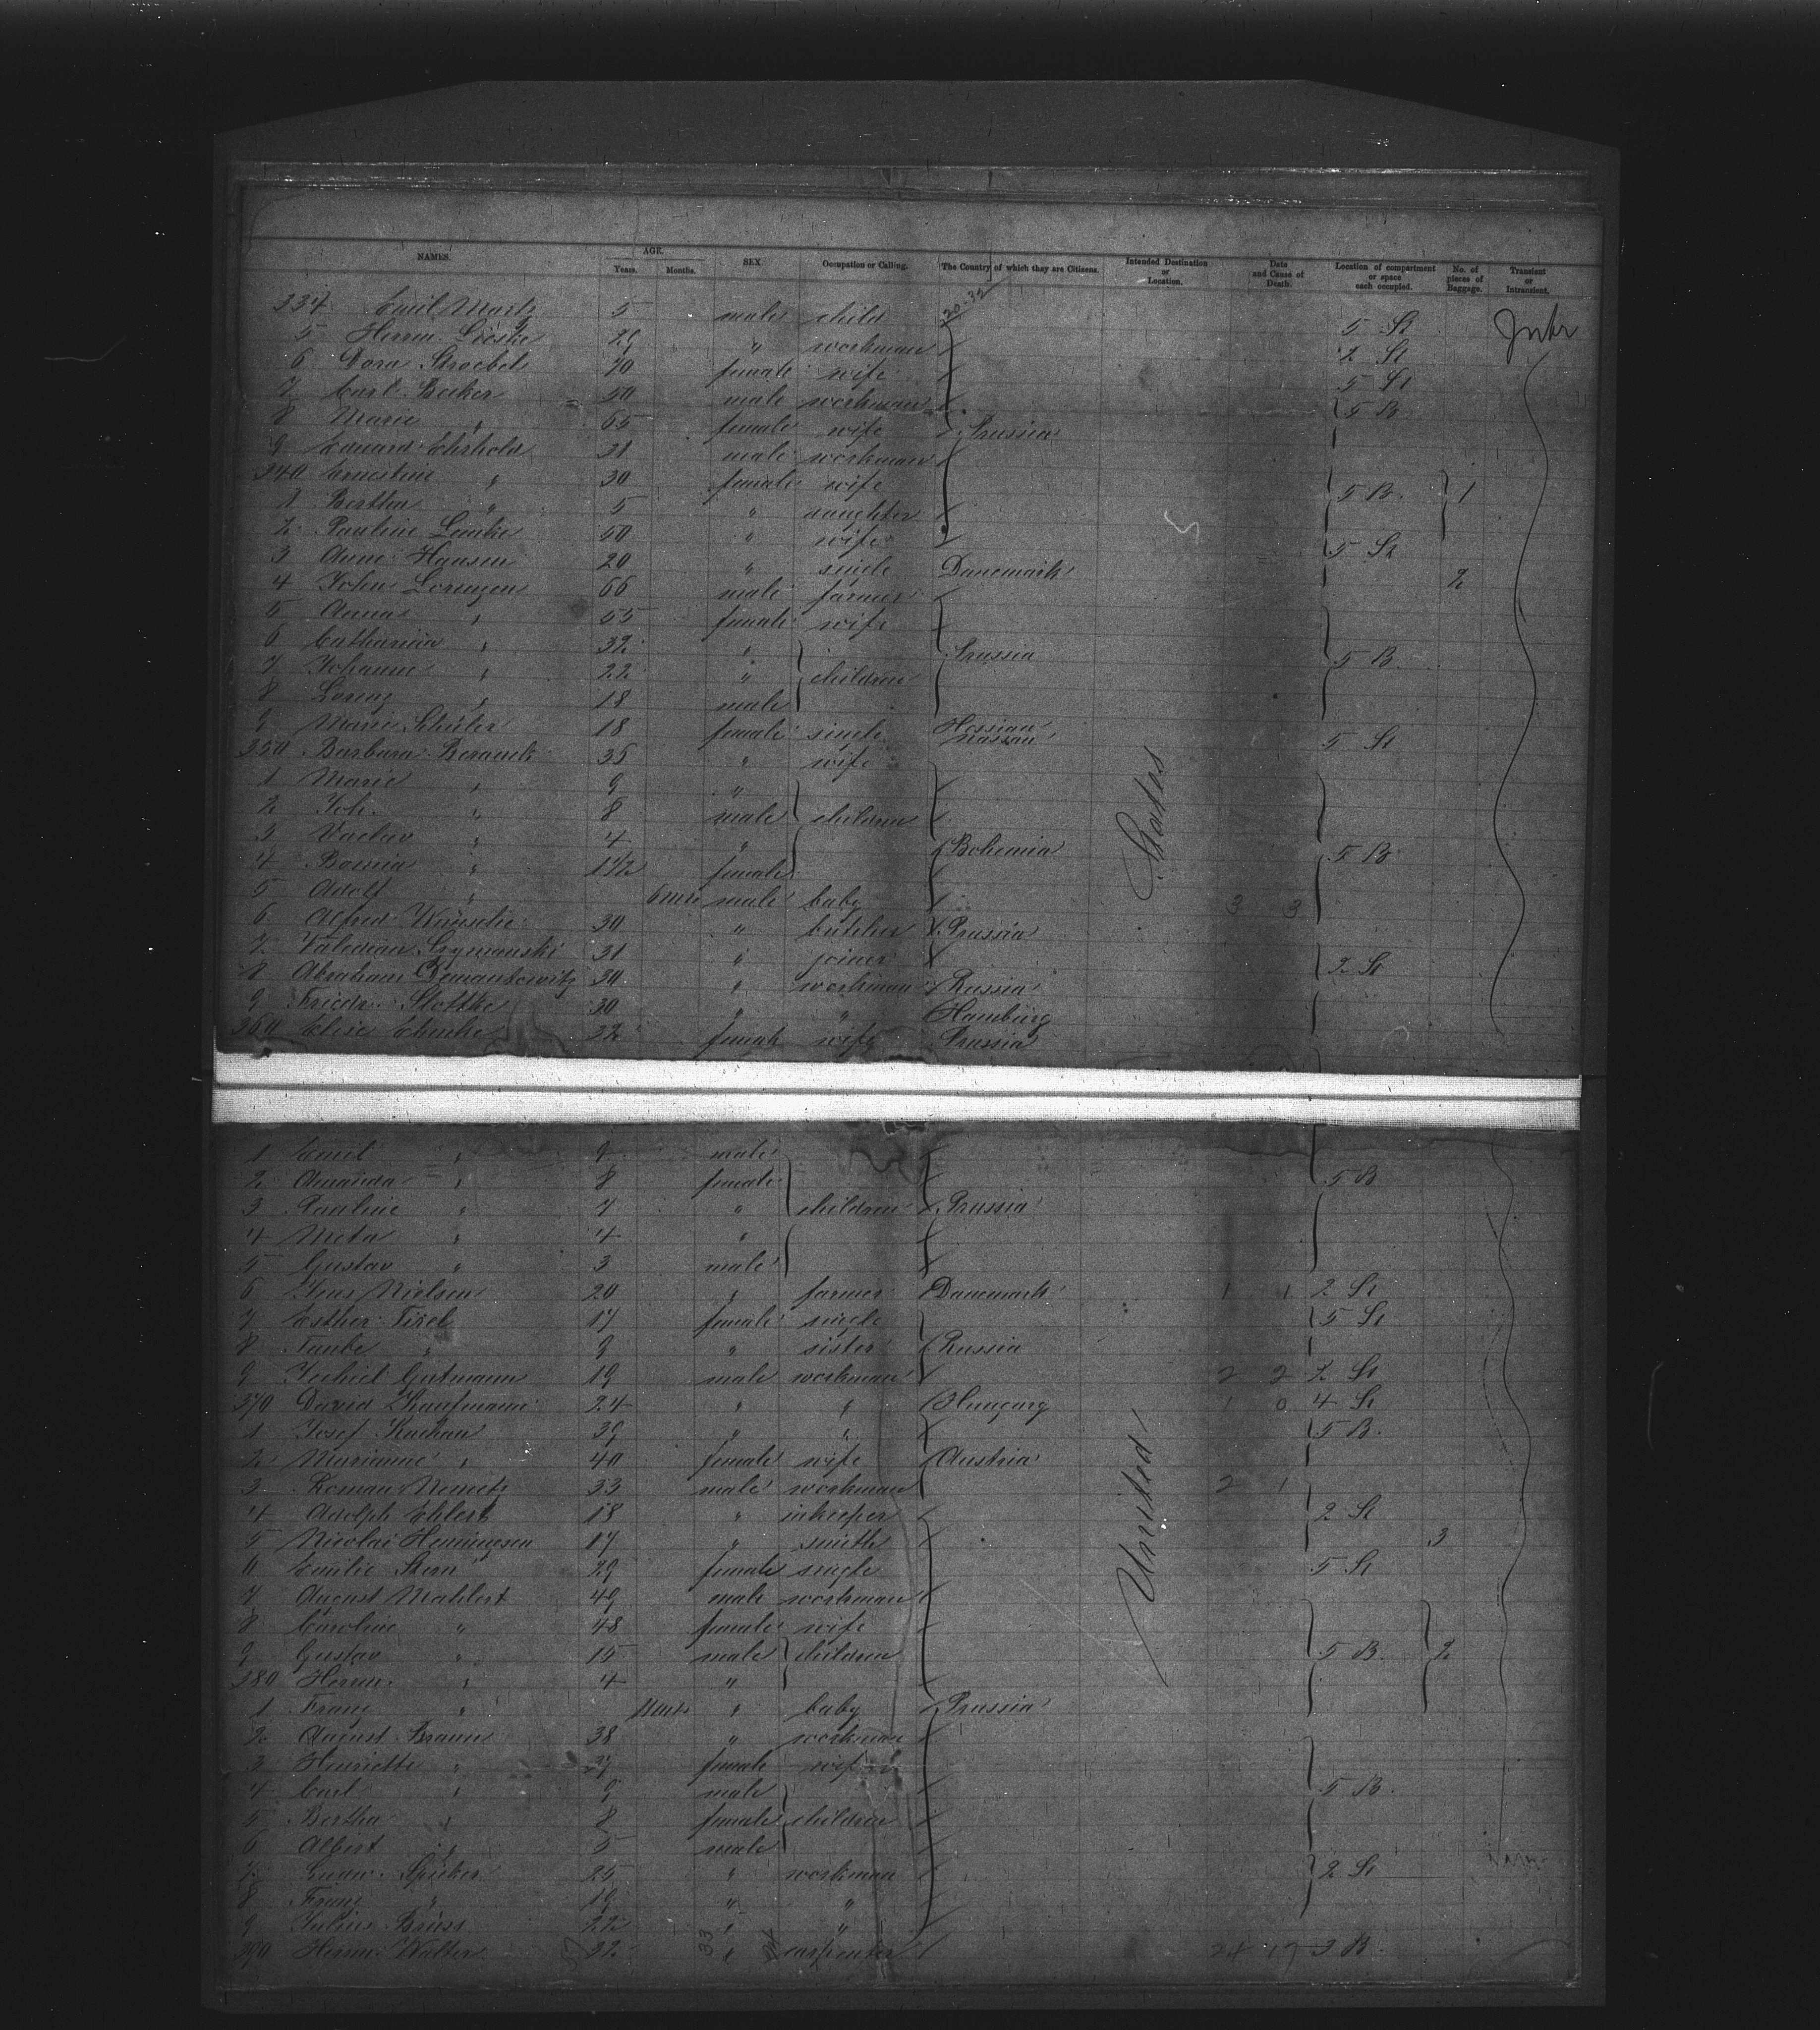 NAMES. AGE. Years. Months. SEX. Occupation or Calling. The Country of which they are Citizens. Intended Destination or Location. Date and Cause of Death. Location of compartment or space each occupied. No. of pieces of Baggage. Transient or Intransient.
334 Emil 5 male child 5 St
5 Herm. 29 " workman 2 St
6 Dora Stroebel female wife 5 St
7 Carl Becker 50 male workman 5 B
8 Marie " 65 female wife Prussia
9 Eduard Ehrhold 31 male workman
340 Ernestine " 30 female wife 5 B. 1
1 Bertha " 5 " daughter
2 Pauline Lemke 50 " wife 5 St
3 Anne Hansen 20 " single Danemark
4 John Lorenzen 66 male farmer 2
5 Anna " 55 female wife
6 Catharina " 32 " Prussia 5 B.
7 Johanne " 22 " children
8 Lorenz " 18 male
9 Marie Schüler 18 female single Hessian Nassau 5 St
350 Barbara 35 " wife
1 Marie " 9 "
2 Joh. " 8 male children
3 Vaclav " 4 " Bohemia 5 B
4 " 1 1/2 female
5 Adolf " male baby 3 3
6 Alfred Wünsche 30 " butcher Prussia
7 31 " joiner 2 St
8 Abraham 30 " workman Russia
9 Friedr. Stoffke 30 " " Hamburg
360 Elise 32 female wife Prussia
1 Emil " 9 male
2 Amanda " 8 female 5 B
3 Pauline " 7 " children Prussia
4 Meta " 4 "
5 Gustav " 3 male
6 Jens Nielsen 20 " farmer Danemark 1 1 2 St
7 Esther 17 female single 5 St
8 Taube " 9 " sister Russia
9 Gutmann 19 male workman 2 2 2 St
370 David Kaufmann 24 " " Hungary 1 0 4 St
1 Josef 39 " " 5 B.
2 Marianne " 40 female wife Austria
3 Roman Nemetz 33 male workman 2 1
4 Adolph Ehlert 18 " inkeeper 2 St
5 Nicolai Henningsen 17 " smith 3
6 Emilie Stern 29 female single 5 St
7 August Mahlert 49 male workman
8 Caroline " 48 female wife
9 Gustav " 15 male children 5 B. 2
380 Herm. " 4 "
1 Franz " " baby Prussia
2 August Braun 38 " workman
3 Henriette " female wife
4 Carl " 9 male 5 B.
5 Bertha " 8 female children
6 Albert " 5 male
7 Spieker 25 " workman 2 St
8 Franz " 19 " "
9 Julius Brüss 22 " "
390 Herm. Walter 32 " carpenter
United States